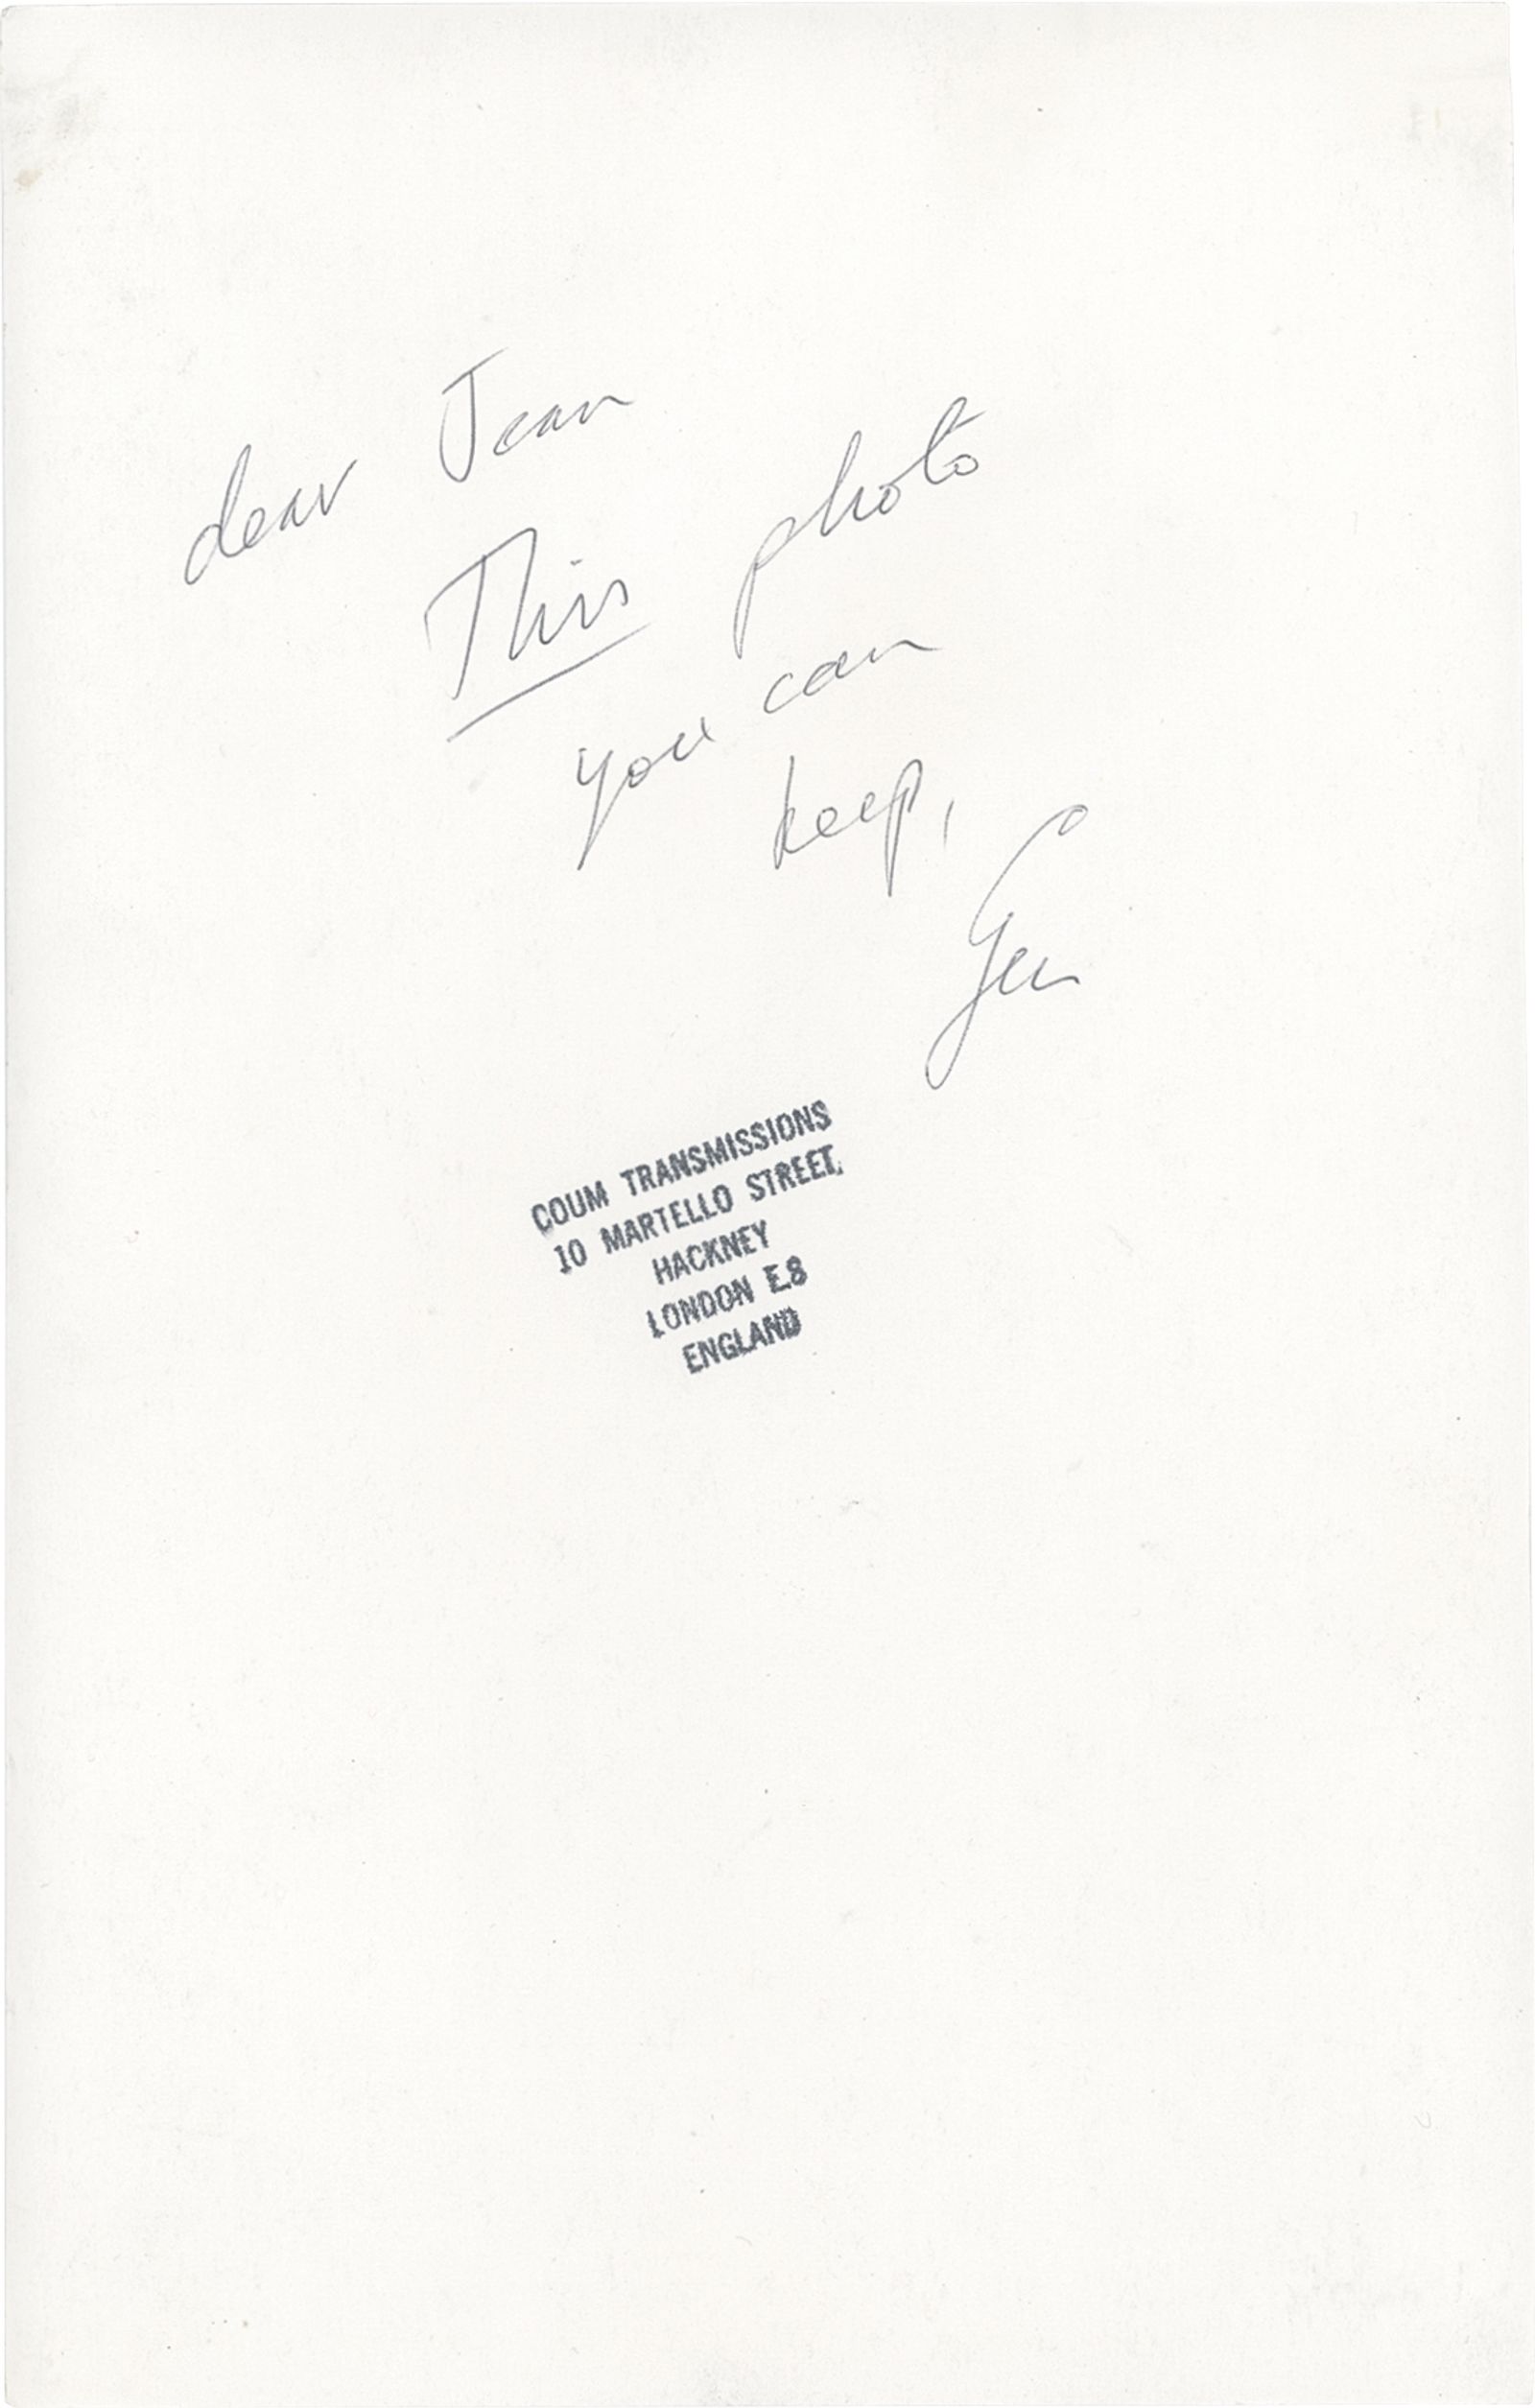 dear Jean
This photo
you can
keep,
Gen
COUM TRANSMISSIONS
10 MARTELLO STREET,
HACKNEY
LONDON E.8
ENGLAND